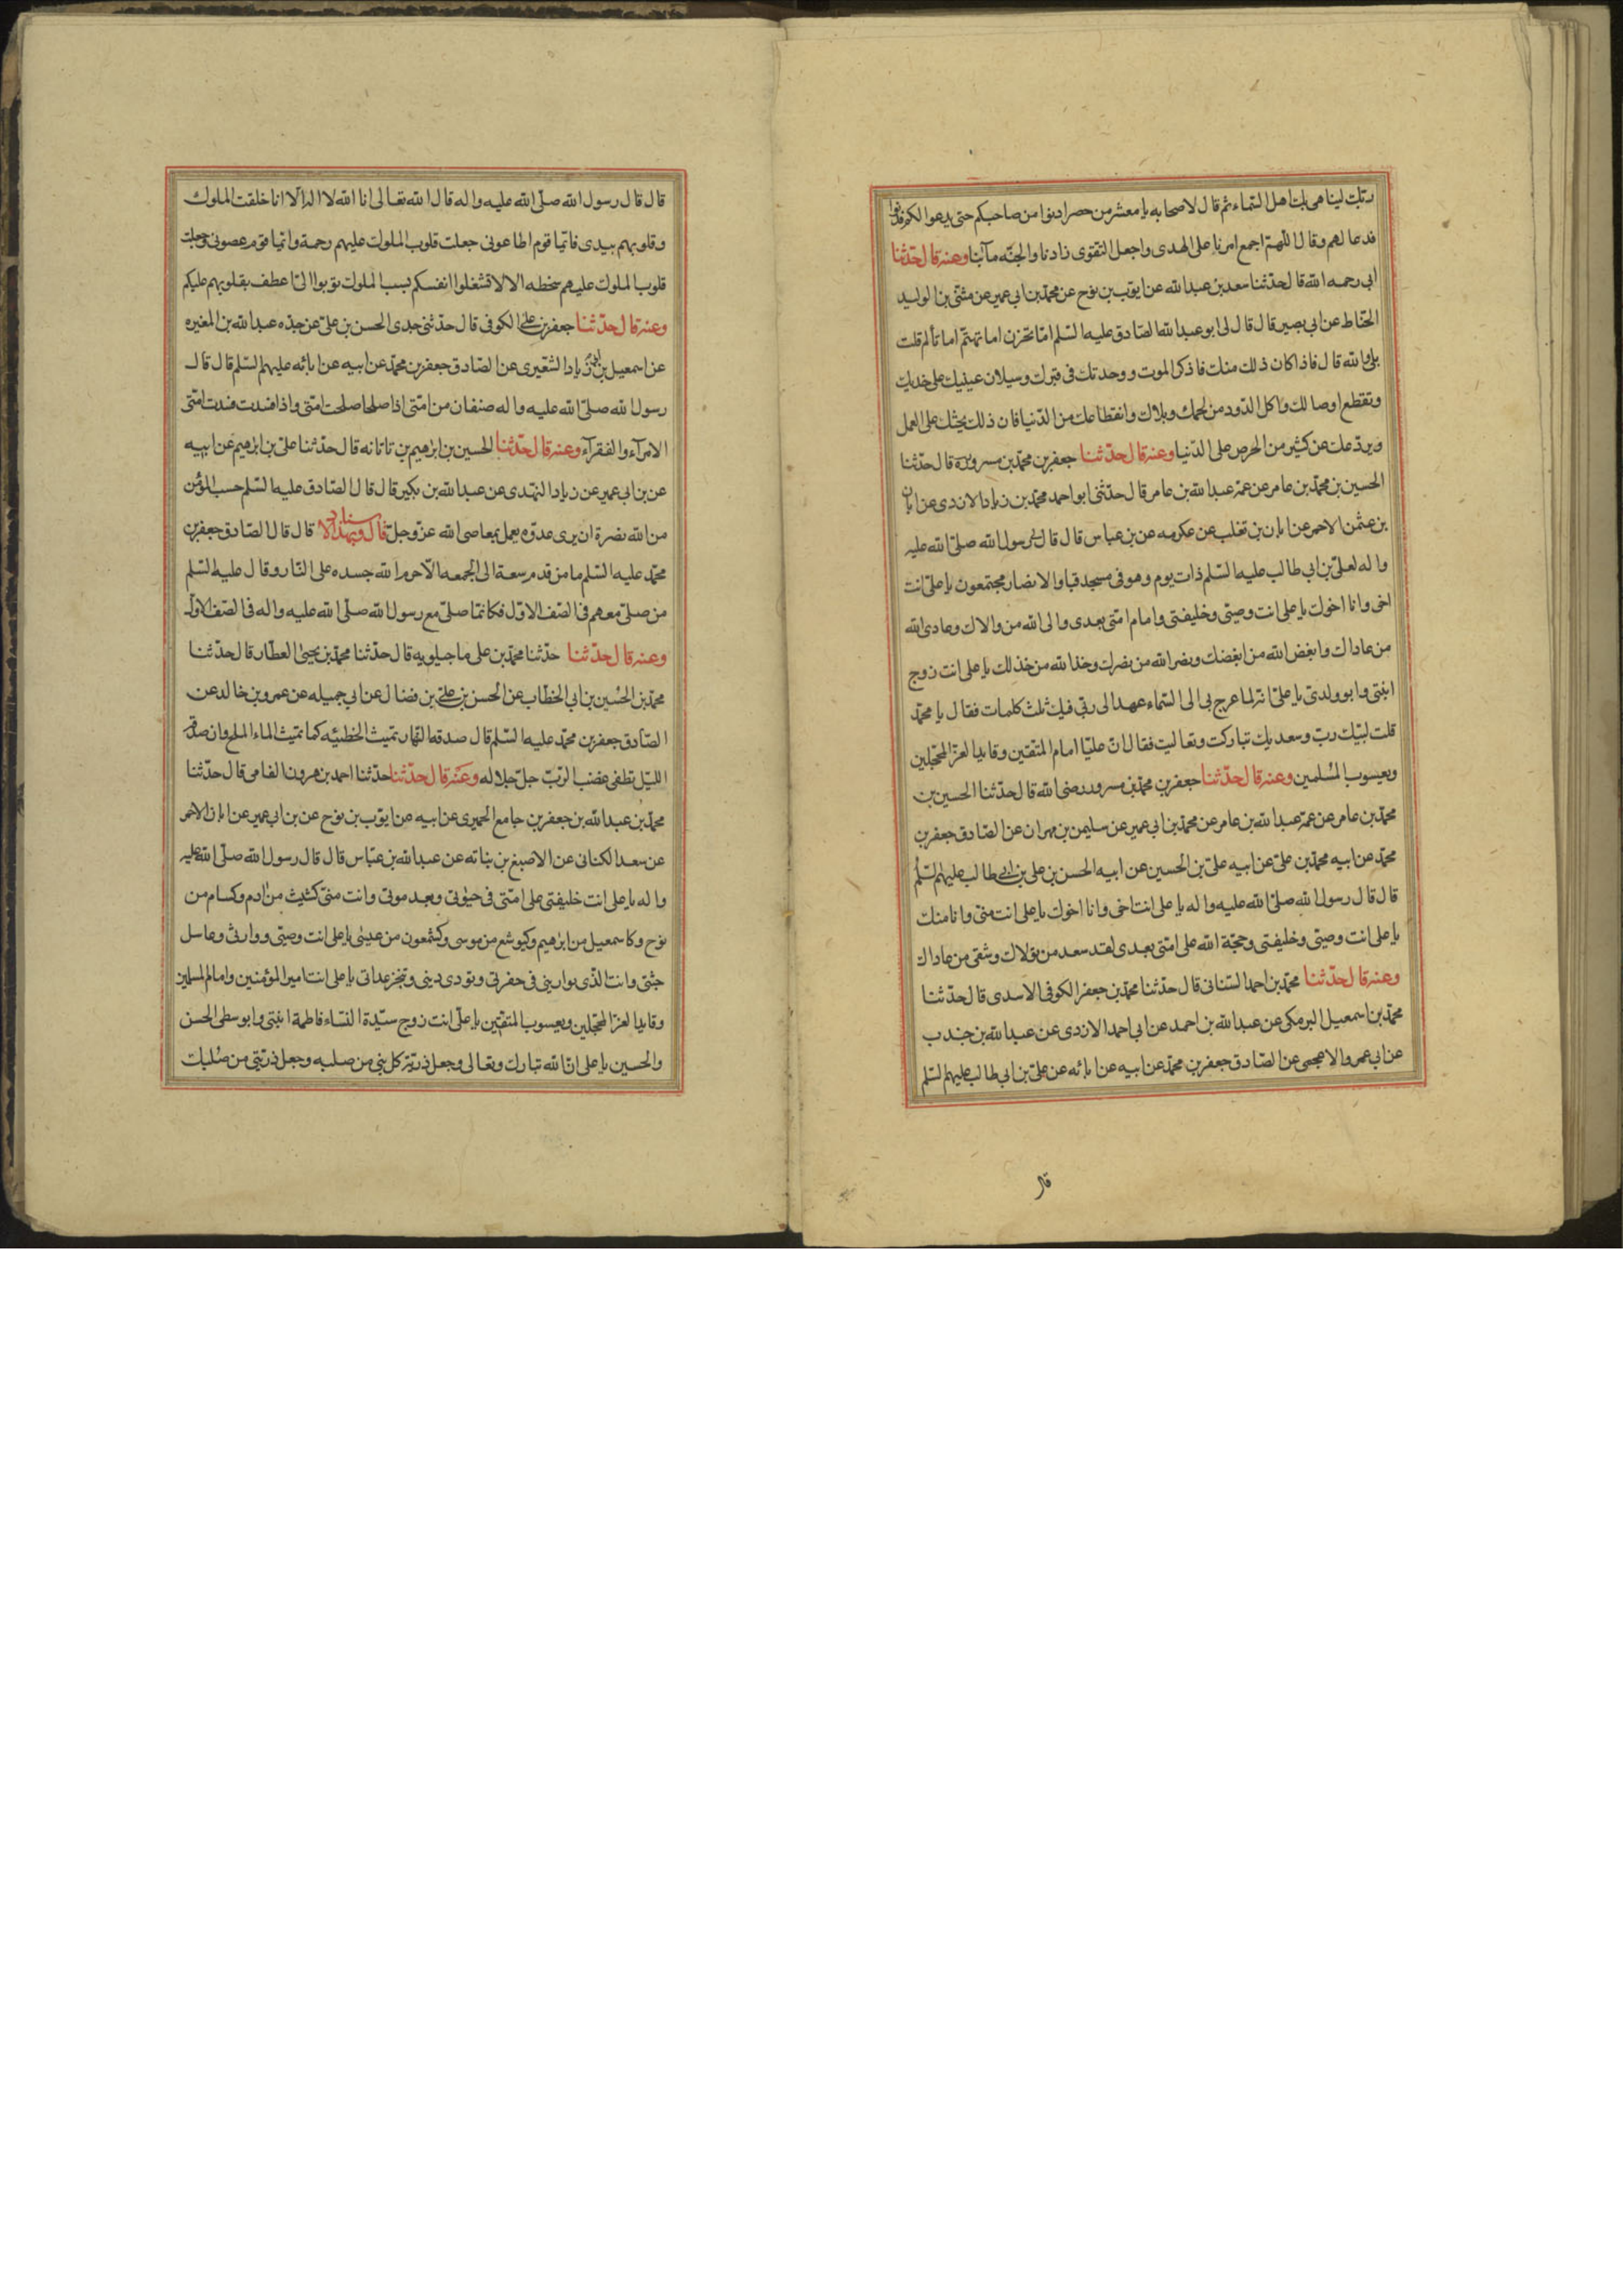 ربك لينا هى بك اهل السماء ثم قال لاصحابه يا معشر من حضر ادنوا من صاحبكم حتى يدعوا لكم فدنوا
فدعا لهم وقال اللهم اجمع امرنا على الهدى واجعل التقوى زادنا والجنّه مآبنا وعنه قال حدّثنا
ابى رحمه الله قال حدّثنا سعد بن عبد الله عن ايوّب بن نوح عن محمّد بن ابى عمير عن مثنّى بن الوليد
الحنّاط عن ابى بصير قال قال لى ابو عبد الله الصّادق عليه السّلم امّا تحزن اما تهتمّ اما تألم قلت
بلى والله قال فاذا كان ذلك منك فاذكر الموت ووحدتك فى قبرك وسيلان عينيك على خديك
وتقطع اوصالك واكل الدّود من لحمك وبلاك وانقطاعك من الدّنيا فان ذلك يحثك على العمل
ويردعك عن كثير من الحرص على الدّنيا وعنه قال حدّثنا جعفر بن محمّد بن مسرور ره قال حدّثنا
الحسين بن محمّد بن عامر عن عمّه عبد الله بن عامر قال حدّثنى ابو احمد محمّد بن زياد الازدى عن ابان
بن عثمن الاحمر عن ابان بن تغلب عن عكرمه عن بن عباس قال قال رسول الله صلّى الله عليه
واله لعلىّ بن ابى طالب عليه السّلم ذات يوم وهو فى مسجد قبا والانصار مجتمعون يا علىّ انت
اخى وانا اخوك يا على انت وصيّى وخليفتى وامام امّتى بعدى والى الله من والاك وعادى الله
من عاداك وابغض الله من ابغضك ونصر الله من نصرك وخذل الله من خذلك يا على انت زوج
ابنتى وابو ولدىّ يا علىّ انّه لما عرج بى الى السّماء عهد الى ربّى فيك ثلث كلمات فقال يا محمّد
قلت لبّيك ربّ وسعديك تباركت وتعاليت فقال انّ عليّا امام المتّقين وقايد الغرّ المحجّلين
ويعسوب المسلمين وعنه قال حدّثنا جعفر بن محمّد بن مسرور رضى الله قال حدّثنا الحسين بن
محمّد بن عامر عن عمّه عبد الله بن عامر عن محمّد بن ابى عمير عن سليمن بن مهران عن الصّادق جعفر بن
محمّد عن ابيه محمّد بن علىّ عن ابيه علىّ بن الحسين عن ابيه الحسن بن على بن ابى طالب عليهم السّلم
قال قال رسول الله صلّى الله عليه واله يا على انت اخى وانا اخوك يا على انت منّى وانا منك
يا على انت وصيّى وخليفتى وحجّة الله على امّتى بعدى لقد سعد من تولاك وشقى من عاداك
وعنه قال حدّثنا محمّد بن احمد السّنانى قال حدّثنا محمّد بن جعفر الكوفى الاسدى قال حدّثنا
محمّد بن اسمعيل البرمكى عن عبد الله بن احمد عن ابى احمد الازدى عن عبد الله بن جندب
عن ابى عمر والاعجمى عن الصّادق جعفر بن محمّد عن ابيه عن ابائه عن علىّ بن ابى طالب عليهم السّلم
قال
قال قال رسول الله صلّى الله عليه واله قال الله تعالى انا الله لا اله الّا انا خلقت الملوك
وقلوبهم بيدى فايّما قوم اطاعونى جعلت قلوب الملوك عليهم رحمة وايّما قوم عصونى وجعلت
قلوب الملوك عليهم سخطه الا لا تشغلوا انفسكم بسب الملوك توبوا الىّ اعطف بقلوبهم عليكم
وعنه قال حدّثنا جعفر بن على الكوفى قال حدّثنى جدى الحسن بن علىّ عن جدّه عبد الله بن المغيره
عن اسمعيل بن ابى زياد الشّعيرى عن الصّادق جعفر بن محمّد عن ابيه عن ابائه عليهم السّلم قال قال
رسول الله صلّى الله عليه واله صنفان من امّتى اذا صلحا صلحت امّتى واذا فسدت فسدت امّتى
الامرآء والفقرآء وعنه قال حدّثنا الحسين بن ابرهيم بن تاتانه قال حدّثنا علىّ بن ابرهيم عن ابيه
عن بن ابى عمير عن زياد النهدى عن عبد الله بن بكير قال قال الصّادق عليه السّلم حسب المؤمن
من الله نصرة ان يرى عدوّه يعمل بمعاصى الله عزّ وجلّ قال وبهذا الاسناد قال قال الصّادق جعفر بن
محمّد عليه السّلم ما من قدم سعة الى الجمعه الّا حرم الله جسده على النّار وقال عليه السّلم
من صلّى معهم فى الصّف الاوّل فكانّما صلّى مع رسول الله صلّى الله عليه واله فى الصّف الاوّل
وعنه قال حدّثنا حدّثنا محمّد بن على ماجيلويه قال حدّثنا محمّد بن يحيى العطّار قال حدّثنا
محمّد بن الحسين بن ابى الخطّاب عن الحسن بن علىّ بن فضال عن ابى جميله عن عمرو بن خالد عن
الصّادق جعفر بن محمّد عليه السّلم قال صدقه النّهار تميث الخطيئه كما تميث الماء الملح وان صدقه
اللّيل تطفى غضب الربّ جلّ جلاله وعنه قال حدّثنا حدّثنا احمد بن هرون الفامى قال حدّثنا
محمّد بن عبد الله بن جعفر بن جامع الحميرى عن ابيه عن ايوّب بن نوح عن بن ابى عمير عن ابان الاحمر
عن سعد الكنانى عن الاصبغ بن بناته عن عبد الله بن عبّاس قال قال رسول الله صلّى الله عليه
واله يا على انت خليفتى على امّتى فى حيوتى وبعد موتى وانت منّى كشيث من ادم وكسام من
نوح وكاسمعيل من ابرهيم وكيوشع من موسى وكشمعون من عيسى يا على انت وصيّى ووارثى وغاسل
جثّتى وانت الّذى يوارينى فى حفرتى وتودى دينى وتنجز عداتى يا على انت امير المؤمنين وامام المسلمين
وقايد الغرّ المحجّلين ويعسوب المتقين يا علىّ انت زوج سيّدة النّساء فاطمة ابنتى وابو سبطى الحسن
والحسين يا على انّ الله تبارك وتعالى وجعل ذريّة كل بنى من صلبه وجعل ذريّتى من صلبك